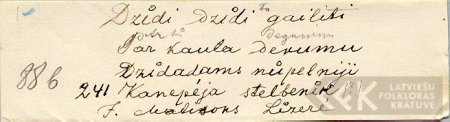 Dzīdi dzīdi gailīti
Par kaula devumu
886
Dzīdadams nůpelniji
241 Kanepēja stelbenīk (?)
F. Malisons Līzerē
LATVIEŠU
FOLKLORAS
KRĀTUVE